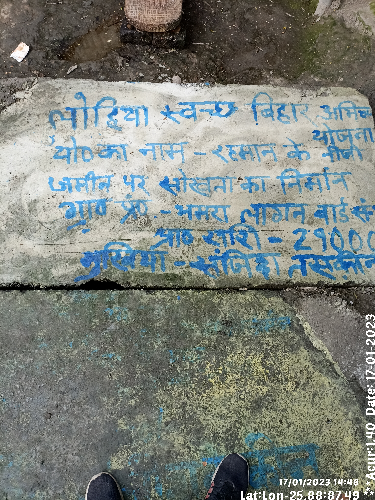 लोहिया स्वच्छ बिहार अभिया
योजना
यो० का नाम - रमजान के नीजी
जमीन पर सोखता का निर्मान
ग्रा० पं० - भमरा लागन वार्ड सं
प्रा० राशी - 29000
मुखिया - संजिदा तस्कीन
17/01/2023 14:46
Lat:Lon-25.88:87.49
**Acur:1.40 Date: 17-01-2023